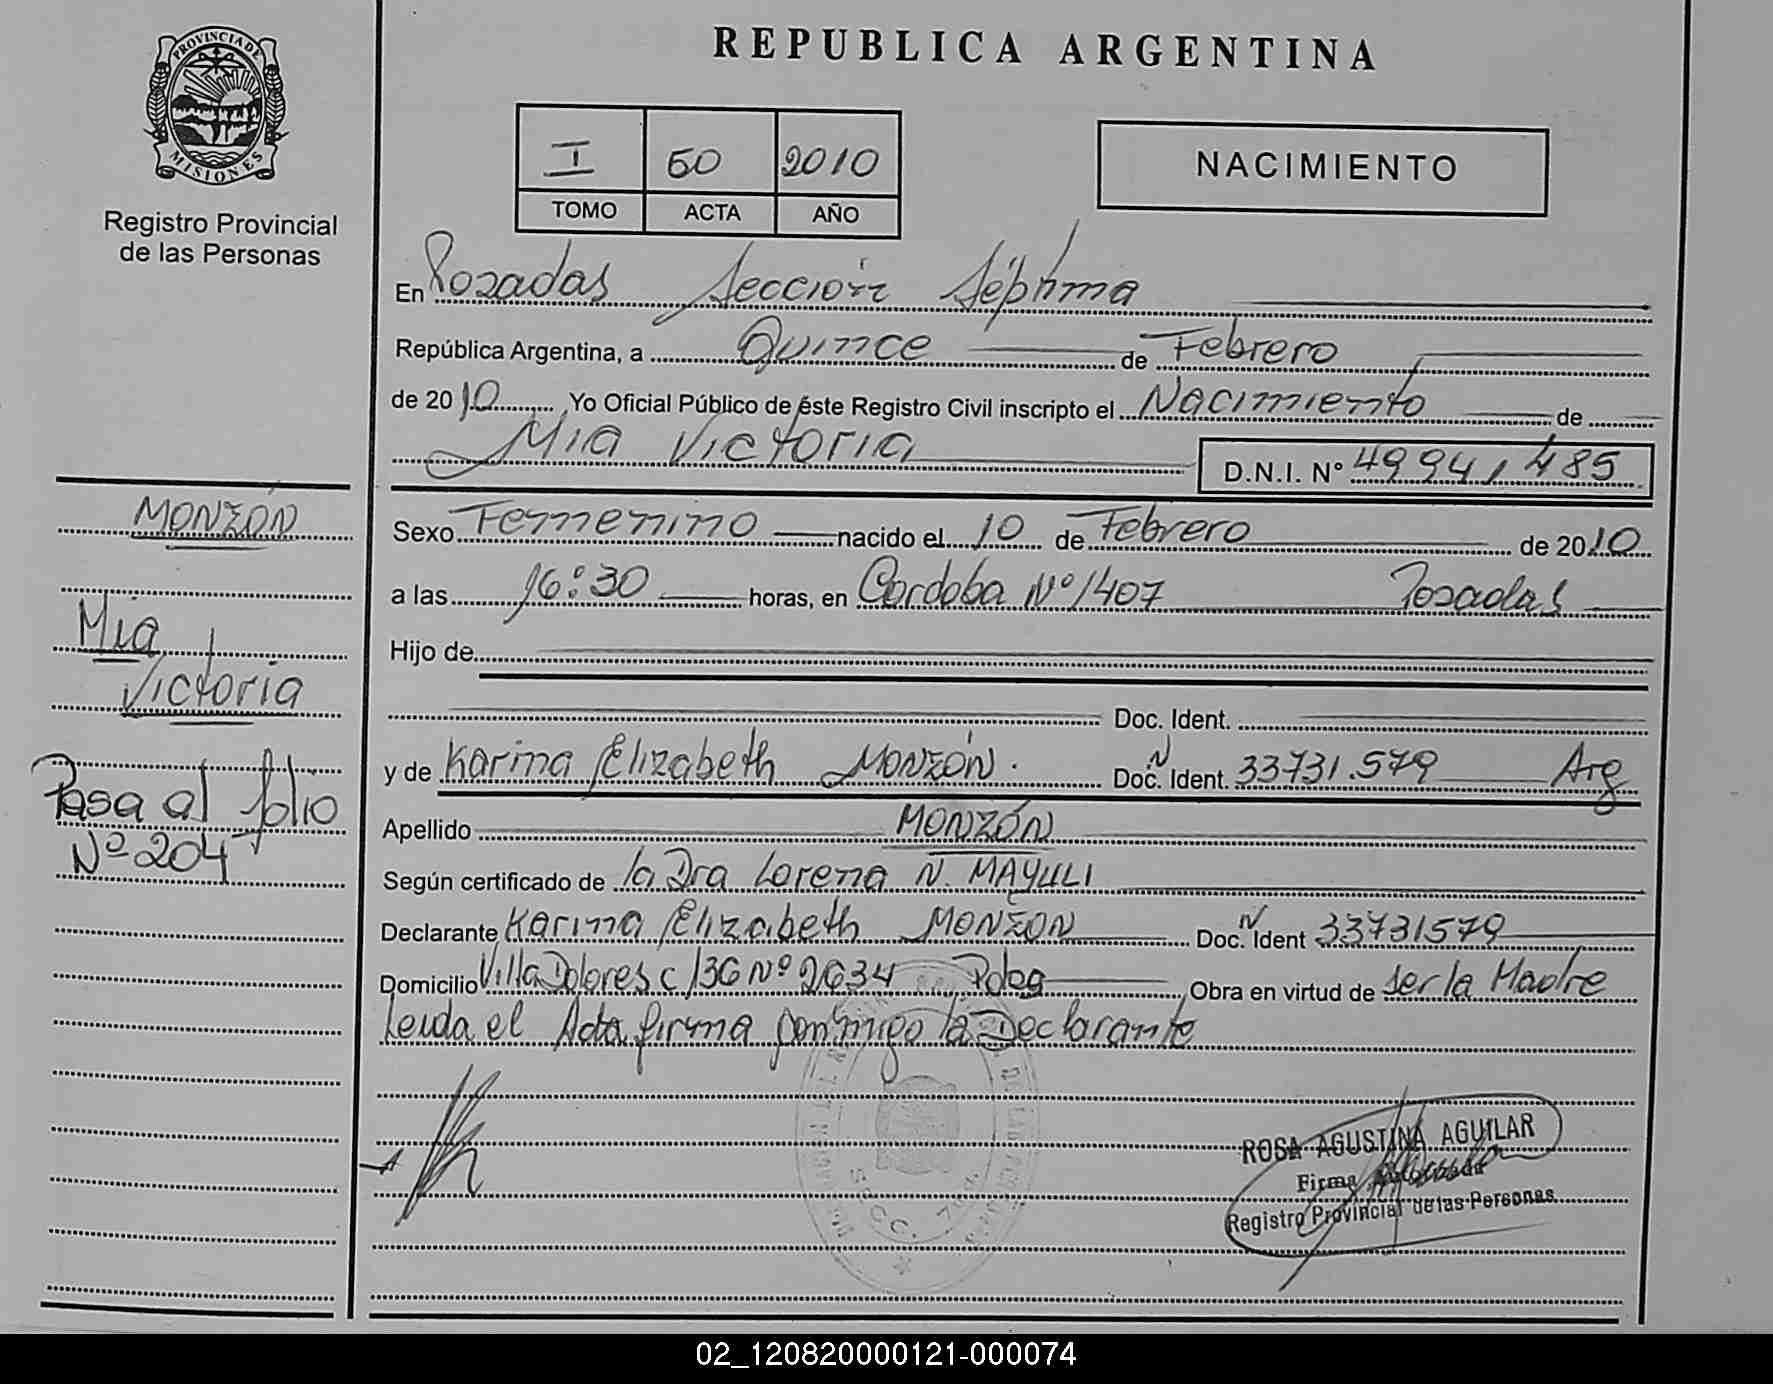 PROVINCIA DE
MISIONES
Registro Provincial
de las Personas
REPUBLICA ARGENTINA
I 60 2010
TOMO ACTA AÑO
NACIMIENTO
En Posadas Sección Séptima
República Argentina, a Quince de Febrero
de 2010 Yo Oficial Público de éste Registro Civil inscripto el Nacimiento de
Mia Victoria D.N.I. Nº 4994 485
Sexo Femenino nacido el 10 de Febrero de 2010
a las 16:30 horas, en Cordoba Nº 1407 Posadas
Hijo de
Doc. Ident.
y de Karina Elizabeth MONZÓN. Doc. N Ident. 33731.579 Arg
Apellido MONZÓN
Según certificado de la Dra Lorena N. MAYULI
Declarante Karina Elizabeth MONZON Doc. N Ident 33731579
Domicilio Villa Dolores c/136 Nº 2634 Pdas Obra en virtud de ser la Madre
Leida el Acta firma conmigo la Declarante
MONZÓN
Mia
Victoria
Pasa al folio
Nº 204
SECC. 7ma
ROSA AGUSTINA AGUILAR
Firma
Registro Provincial de las Personas
02_120820000121-000074